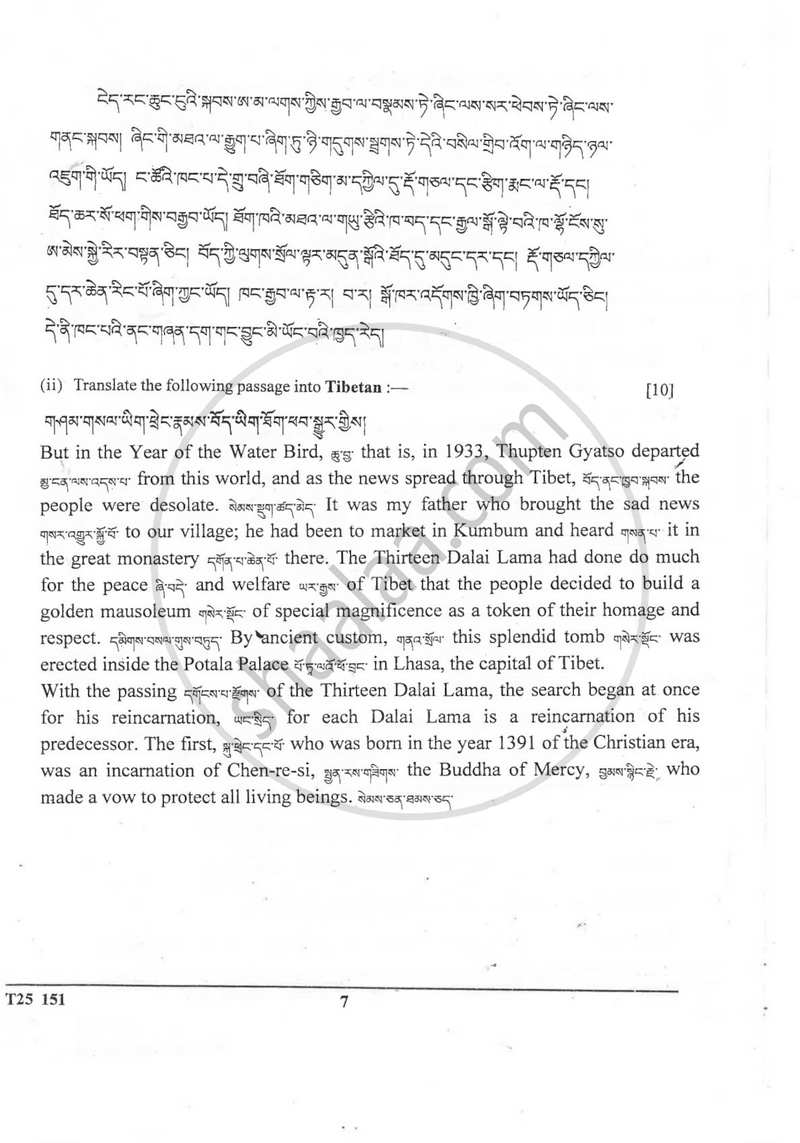 ངེད་རང་ཆུང་དུའི་སྐབས་ཨ་མ་ལགས་ཀྱིས་རྒྱབ་ལ་བསྣམས་ཏེ་ཞིང་ལས་སར་ཕེབས་ཏེ་ཞིང་ལས་
གནང་སྐབས། ཞིང་གི་མཐའ་ལ་རྒྱུག་པ་ཞིག་ཏུ་ཉི་གདུགས་སྦྲགས་ཏེ་དེའི་བསིལ་གྲིབ་འོག་ལ་གཉིད་ཉལ་
འཇུག་གི་ཡོད། ང་ཚོའི་ཁང་པ་དེ་གྲུ་བཞི་ཐོག་གཅིག་མ་དཀྱིལ་དུ་རྡོ་གཅལ་དང་རྩིག་རྨང་ལ་རྡོ་དང།
ཐོད་ཆར་སོ་ཕག་གིས་བརྒྱབ་ཡོད། ཐོག་ཁའི་མཐའ་ལ་གཡུ་རྩིའི་ཁ་བད་དང་རྒྱལ་སྒོ་ལྟེ་བའི་ཁ་ལྷོ་ངོས་སུ་
ཨ་མེས་སྐྱེ་རིར་བསྟན་ཅིང། བོད་ཀྱི་ལུགས་སྲོལ་ལྟར་མདུན་སྒོའི་ཐོད་དུ་མདུང་དར་དང། རྡོ་གཅལ་དཀྱིལ་
དུ་དར་ཆེན་རིང་པོ་ཞིག་ཀྱང་ཡོད། ཁང་རྒྱབ་ལ་རྟ་ར། བ་ར། སྒོ་ཁར་འདོགས་ཁྱི་ཞིག་བཏགས་ཡོད་ཅིང།
དེ་ནི་ཁང་པའི་ནང་གཞན་དག་གང་བྱུང་མི་ཡོང་བའི་ཁྱད་རེད།
(ii) Translate the following passage into Tibetan :— [10]
གཤམ་གསལ་ཡིག་ཕྲེང་རྣམས་བོད་ཡིག་ཐོག་ཕབ་སྒྱུར་གྱིས།
But in the Year of the Water Bird, ཆུ་བྱ་ that is, in 1933, Thupten Gyatso departed
མྱ་ངན་ལས་འདས་པ་ from this world, and as the news spread through Tibet, བོད་ནང་ཁྱབ་སྐབས་ the
people were desolate. སེམས་སྡུག་ཚད་མེད་ It was my father who brought the sad news
གསར་འགྱུར་སྐྱོ་པོ་ to our village; he had been to market in Kumbum and heard གསན་པ་ it in
the great monastery དགོན་པ་ཆེན་པོ་ there. The Thirteen Dalai Lama had done do much
for the peace ཞི་བདེ་ and welfare ཡར་རྒྱས་ of Tibet that the people decided to build a
golden mausoleum གསེར་སྡོང་ of special magnificence as a token of their homage and
respect. དམིགས་བསལ་གུས་བཏུད་ By ancient custom, གནའ་སྲོལ་ this splendid tomb གསེར་སྡོང་ was
erected inside the Potala Palace པོ་ཏ་ལའི་ཕོ་བྲང་ in Lhasa, the capital of Tibet.
With the passing དགོངས་པ་རྫོགས་ of the Thirteen Dalai Lama, the search began at once
for his reincarnation, ཡང་སྲིད་ for each Dalai Lama is a reincarnation of his
predecessor. The first, སྐུ་ཕྲེང་དང་པོ་ who was born in the year 1391 of the Christian era,
was an incarnation of Chen-re-si, སྤྱན་རས་གཟིགས་ the Buddha of Mercy, བྱམས་སྙིང་རྗེ་ who
made a vow to protect all living beings. སེམས་ཅན་ཐམས་ཅད་
shaalaa.com
T25 151
7